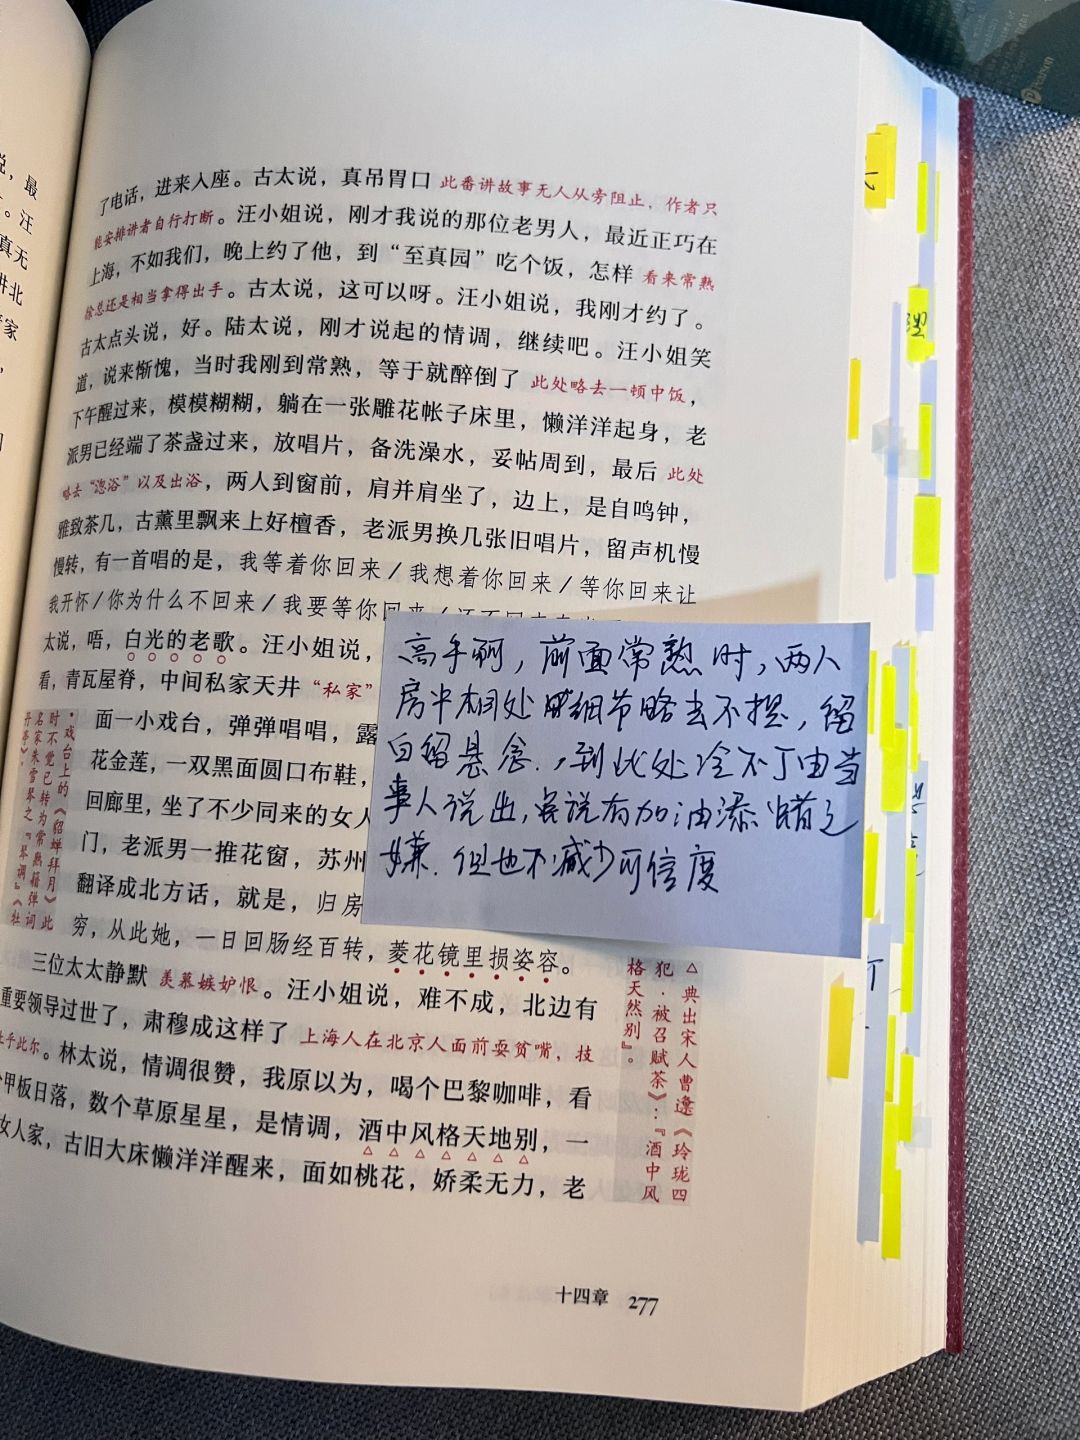 说，最
。汪
真无
井北
了电话，进来入座。古太说，真吊胃口 此番讲故事无人从旁阻止，作者只
能安排讲者自行打断。汪小姐说，刚才我说的那位老男人，最近正巧在
上海，不如我们，晚上约了他，到“至真园”吃个饭，怎样 看来常熟
徐总还是相当拿得出手。古太说，这可以呀。汪小姐说，我刚才约了。
古太点头说，好。陆太说，刚才说起的情调，继续吧。汪小姐笑
道，说来惭愧，当时我刚到常熟，等于就醉倒了 此处略去一顿中饭，
下午醒过来，模模糊糊，躺在一张雕花帐子床里，懒洋洋起身，老
派男已经端了茶盏过来，放唱片，备洗澡水，妥帖周到，最后 此处
略去“汤浴”以及出浴，两人到窗前，肩并肩坐了，边上，是自鸣钟，
雅致茶几，古薰里飘来上好檀香，老派男换几张旧唱片，留声机慢
慢转，有一首唱的是，我等着你回来/我想着你回来/等你回来让
我开怀/你为什么不回来/我要等你回来/还不回来
太说，唔，白光的老歌。汪小姐说，
看，青瓦屋脊，中间私家天井 “私家”
面一小戏台，弹弹唱唱，露
花金莲，一双黑面圆口布鞋，
回廊里，坐了不少同来的女人
门，老派男一推花窗，苏州
翻译成北方话，就是，归房
穷，从此她，一日回肠经百转，菱花镜里损姿容。
三位太太静默 羡慕嫉妒恨。汪小姐说，难不成，北边有
重要领导过世了，肃穆成这样了 上海人在北京人面前耍贫嘴，技
止乎此尔。林太说，情调很赞，我原以为，喝个巴黎咖啡，看
甲板日落，数个草原星星，是情调，酒中风格天地别，一
女人家，古旧大床懒洋洋醒来，面如桃花，娇柔无力，老
·戏台上的《貂蝉拜月》此
时不觉已转为常熟籍弹词
名家朱雪琴之『琴调』《牡
丹亭》。
高手啊，前面常熟时，两人
房中相处细节略去不提，留
白留悬念，到此处冷不丁由当
事人说出，虽说有加油添醋之
嫌．但也不减少可信度
△典出宋人曹邍《玲珑四
犯·被召赋荼》：『酒中风
格天然别』。
十四章 277